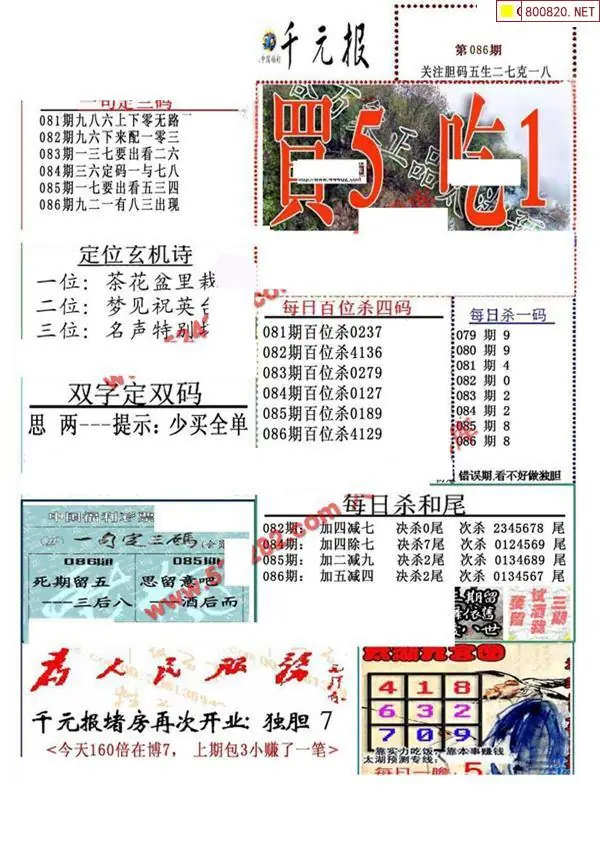 800820.NET
千元报
中国福利
第086期
关注胆码五生二七克一八
一句定三码
081期九八六上下零无路
082期九六下来配一零三
083期一三七要出看二六
084期三六定码一与七八
085期一七要出看五三四
086期九二一有八三出现
買5 吃1
正品
定位玄机诗
一位：茶花盆里栽
二位：梦见祝英台
三位：名声特别
每日百位杀四码
081期百位杀0237
082期百位杀4136
083期百位杀0279
084期百位杀0127
085期百位杀0189
086期百位杀4129
每日杀一码
079 期 9
080 期 9
081 期 4
082 期 0
083 期 2
084 期 2
085 期 8
086 期 8
错误期,看不好做独胆
双字定双码
思 两---提示：少买全单
中国福利彩票
一句定三碼(会员
086期
死期留五
---三后八
085期
思留意吧
---酒后而
每日杀和尾
082期： 加四减七 决杀0尾 次杀 2345678 尾
084期： 加四除七 决杀7尾 次杀 0124569 尾
085期： 加二减九 决杀2尾 次杀 0134689 尾
086期： 加五减四 决杀2尾 次杀 0134567 尾
为人民服务
千元报堵房再次开业：独胆 7
<今天160倍在博7， 上期包3小赚了一笔>
4 1 8
6 3 2
7 0 9
靠实力吃饭，靠本事赚钱
太湖预测专线：
每日一胆 5